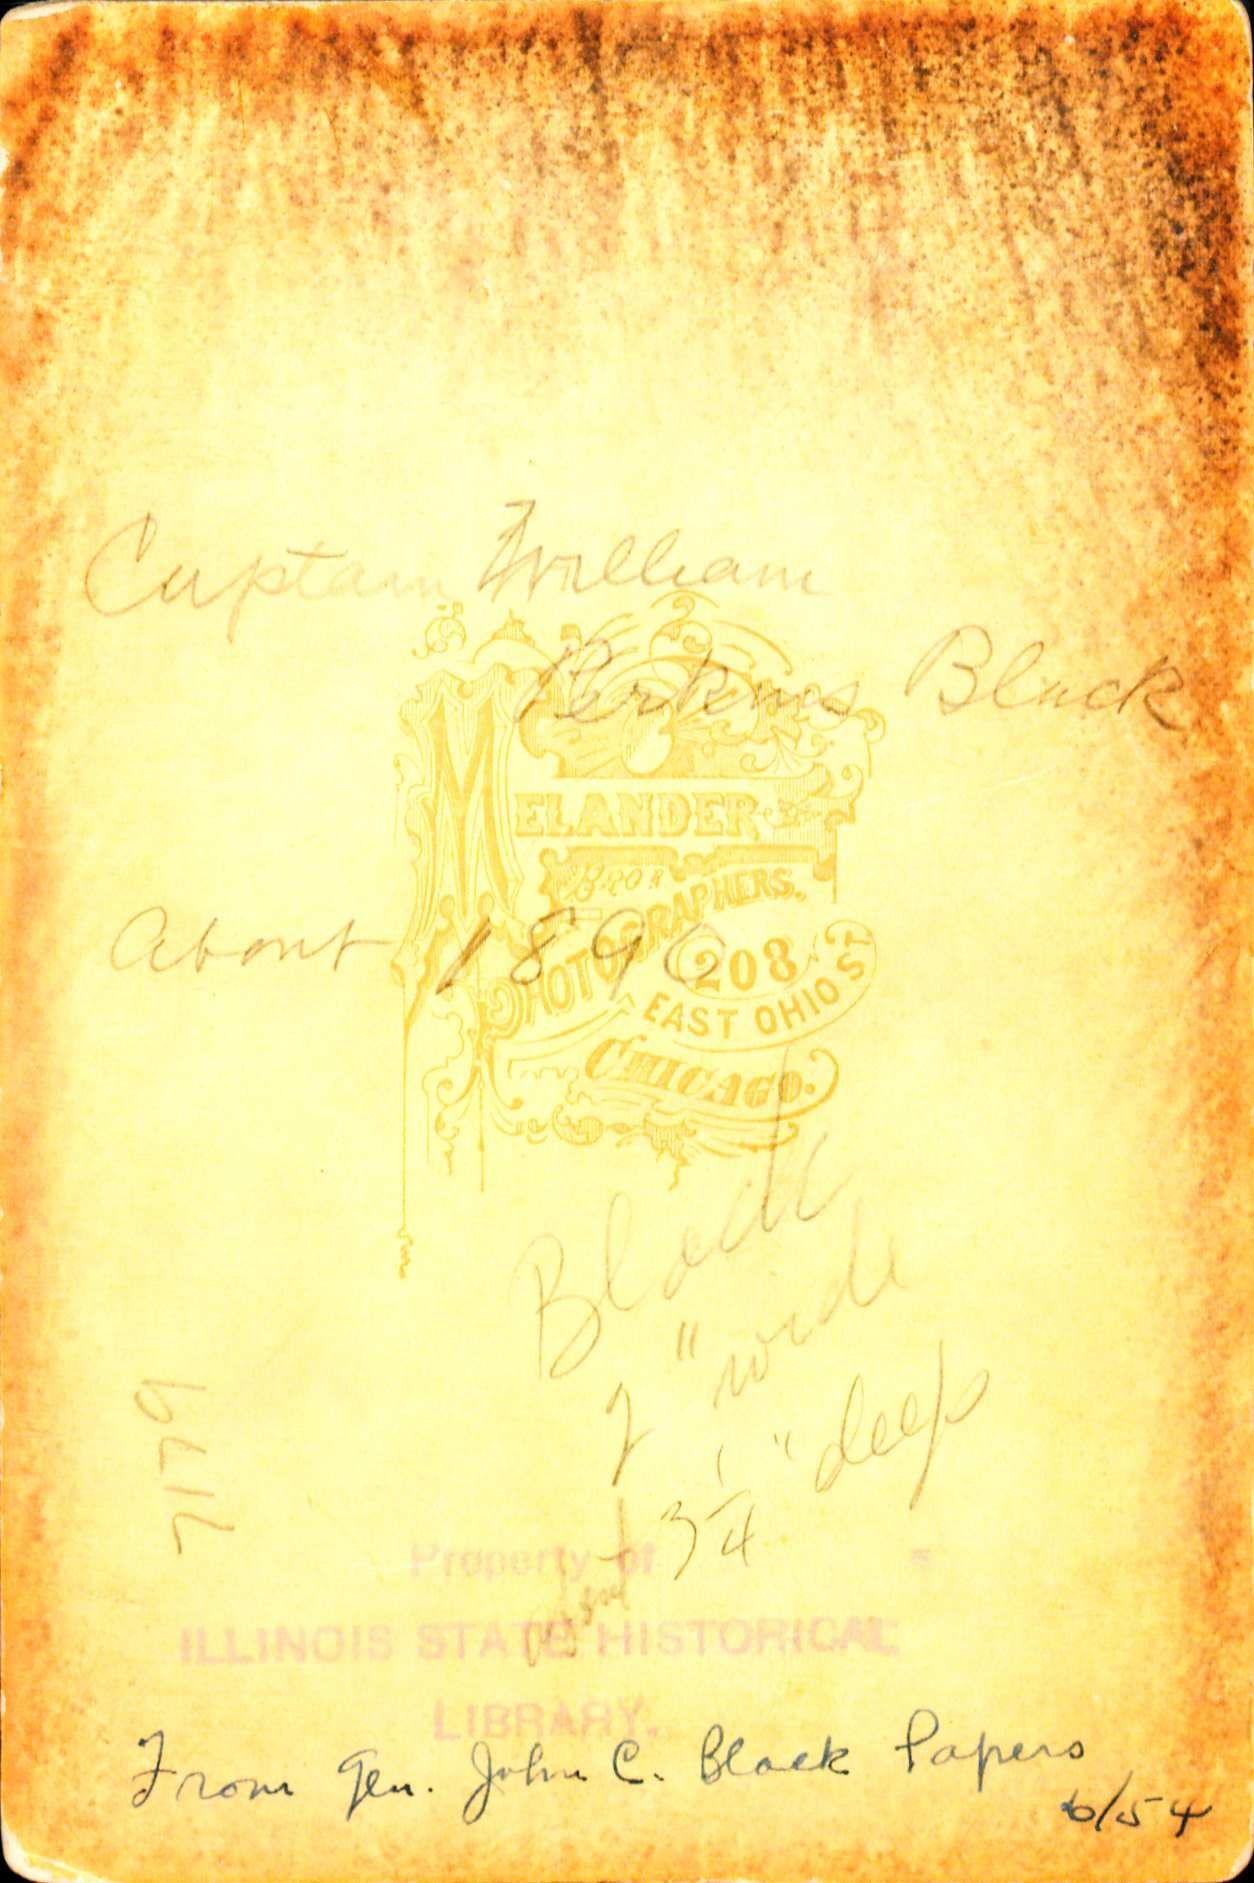 Captain William
Perkins Black
MELANDER
BROS
PHOTOGRAPHERS.
About 1890
208
EAST OHIO ST
CHICAGO.
Black
2 " wide
3 1/4 " deep
7179
Property of
ILLINOIS STATE HISTORICAL
LIBRARY.
From Gen. John C. Black Papers
6/54